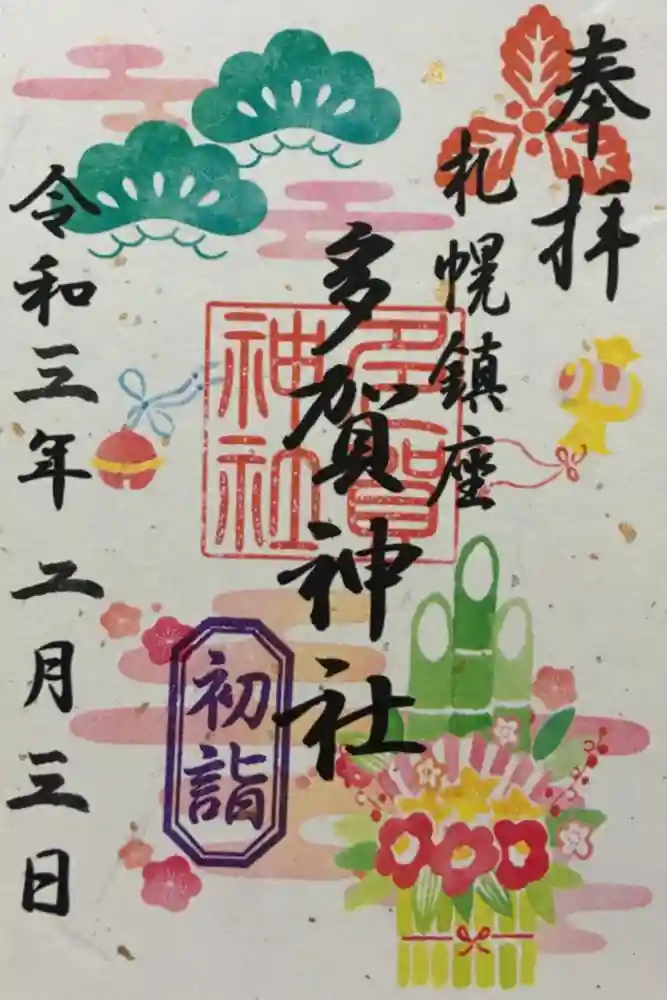 奉拝
札幌鎮座
多賀神社
多賀神社
初詣
令和三年二月三日